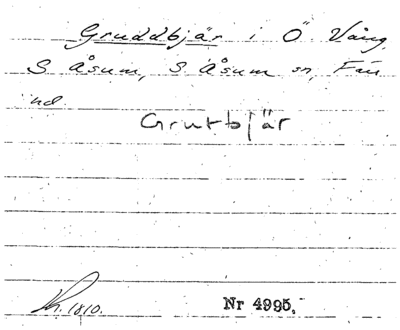 Gruddbjär i Ö. Vång,
S Åsum, S Åsum sn, Färs
hd
Grutbjär
Kh. 1810.
Nr 4995.